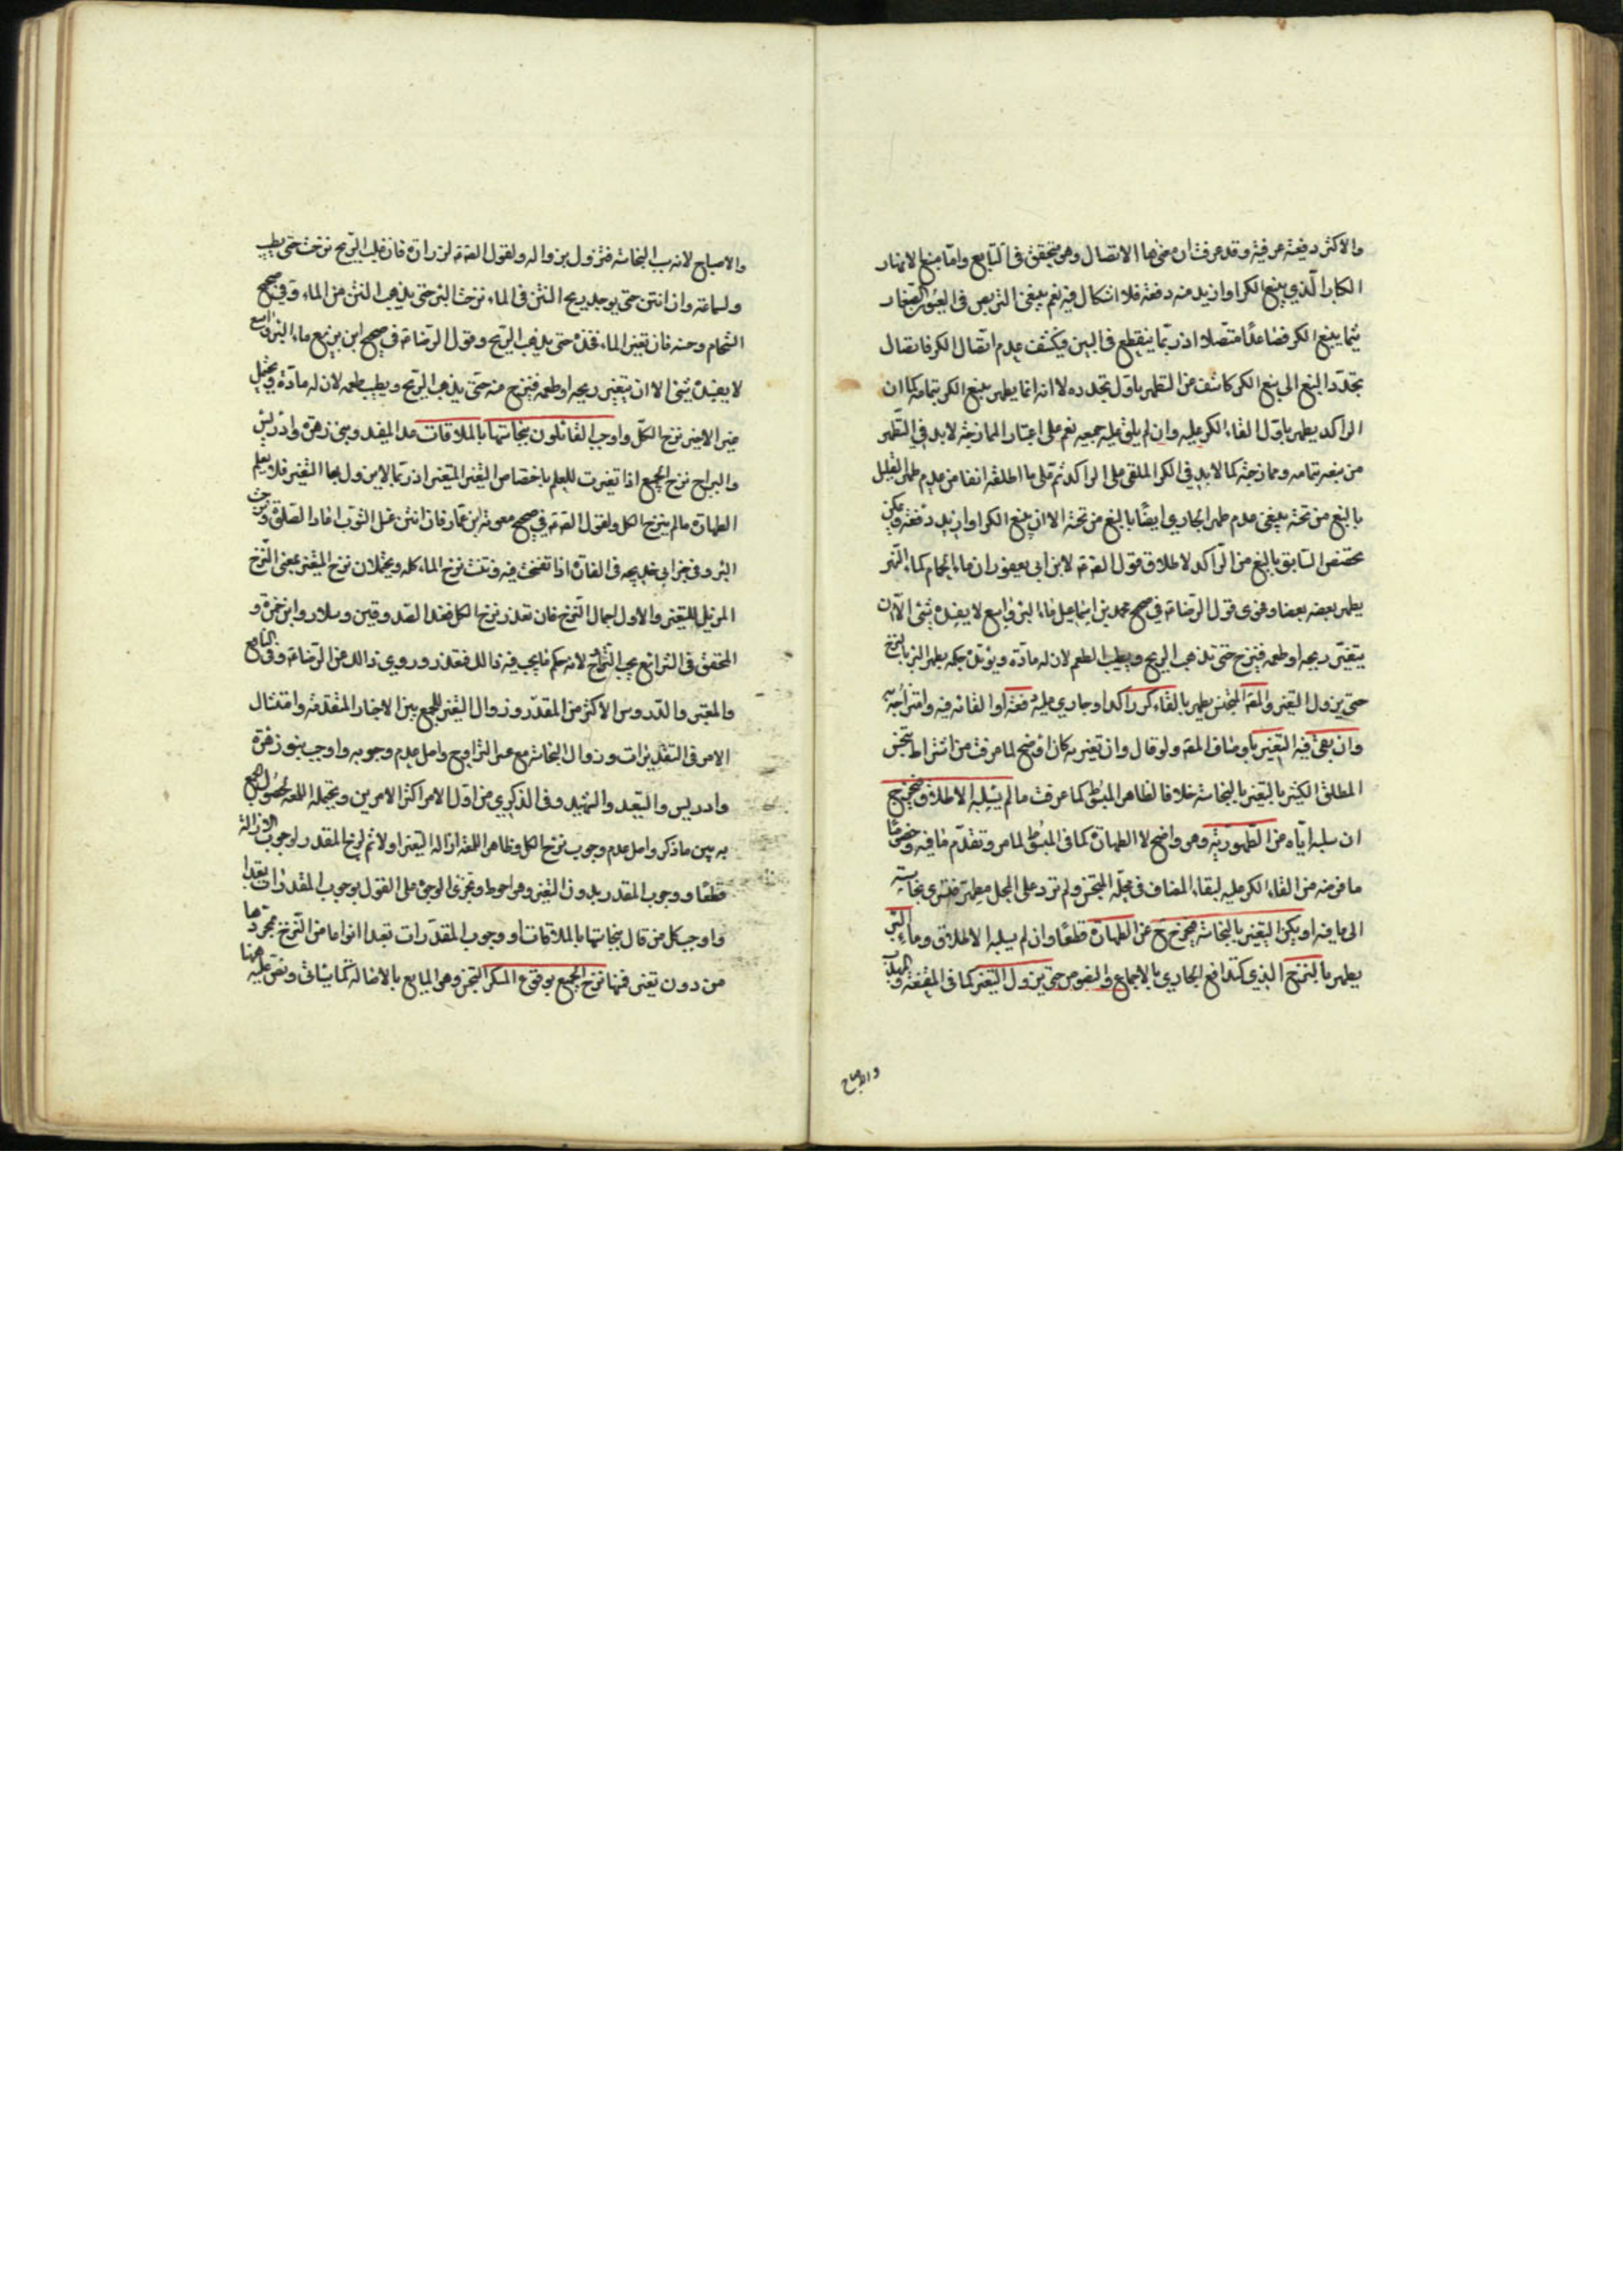 والاكثر دفعة عرفية وقد عرفت ان معناها الاتصال وهو متحقق في النابع واما منبع الانهار
الكبار الذي ينبع الكر او ازيد منه دفعة فلا اشكال فيه نعم ينبغي التربص في العيون الصغار
ينما ينبع الكر فصاعدا متصلا اذ ربما ينقطع في البين فيكشف عدم اتصال الكر فاتصال
تجدد النبع الى نبع الكر كاشف عن التطهر باول تجدده لا انه انما يطهر بنبع الكر بتمامه كما ان
الراكد يطهر باول القاء الكر عليه وان لم يلق عليه جميعه نعم على اعتبار الممازجة لابد في التطهر
من نبعه بتمامه وممازجته كما لابد في الكر الملقى على الراكد ثم على ما اطلقه انفا من عدم طهر القليل
بالنبع من تحته ينبغي عدم طهر الجاري ايضا بالنبع من تحته الا ان ينبع الكر او ازيد دفعة ويمكن
تخصيص السابق بالنبع من الراكد لاطلاق قول الصادق ع لابن ابي يعفور ان ماء الحمام كماء النهر
يطهر بعضه بعضا وفحوى قول الرضا ع في صحيح محمد بن اسماعيل ماء البئر واسع لا يفسده شئ الا ان
يتغير ريحه او طعمه فينزح حتى تذهب الريح ويطيب الطعم لان له مادة ويؤيده حكمه بطهر البئر بالنزح
حتى يزول التغير والمضاف المتنجس يطهر بالقاء كر راكد او جاري عليه دفعة او القائه فيه وامتزاجه به
وان بقي فيه التغير باوصاف المضاف ولو قال وان تغير به كان اوضح لما عرفت من اشتراط تنجس
المطلق الكثير بالتغير بالنجاسة خلافا لظاهر المبسوط كما عرفت ما لم يسلبه الاطلاق فيخرج
ان سلبه اياه عن الطهورية وهو واضح لا الطهارة كما في المبسوط لما مر وتقدم ما فيه وخصوصا
ما فرضه من القاء الكر عليه لبقاء المضاف في محله المتنجس ولم ترد على المحل مطهر فتسري نجاسته
الى ما فيه او يكن التغير بالنجاسة فيخرج ح عن الطهارة قطعا وان لم يسلبه الاطلاق وماء البئر
يطهر بالنزح الذي كتدافع الجاري بالاجماع والنصوص حتى يزول التغير كما في المقنعة والتهذيب
والاصباح
والاصباح لانه سبب النجاسة فتزول بزواله ولقول الصادق ع لزرارة فان غلب الريح نزحت حتى يطيب
ولسماعة وان انتن حتى يوجد ريح النتن في الماء نزحت البئر حتى يذهب النتن من الماء وفي صحيح
الشحام وحسنه فان تغير الماء فخذه حتى يذهب الريح وقول الرضا ع في صحيح ابن بزيع ماء البئر واسع
لا يفسده شئ الا ان يتغير ريحه او طعمه فينزح منه حتى يذهب الريح ويطيب طعمه لان له مادة ويحتمل
غير الاخير نزح الكل واوجب القائلون بنجاستها بالملاقات عدا المفيد وبني زهرة وادريس
والبراج نزح الجميع اذا تغيرت للعلم باختصاص التغير المتغير اذ ربما لا يزول بها التغير فلا يعلم
الطهارة ما لم ينزح الكل ولقول الصادق ع في صحيح معوية بن عمار فان انتن غسل الثوب اعاد الصلوة ونزحت
البئر وفي خبر ابي خديجة في الفارة اذا تفسخت فيه ونتنت نزح الماء كله ويحتملان نزح المتغير بمعنى النزح
المزيل للتغير والاول اجمال النزح فان تعذر نزح الكل فعند الصدوقين وسلار وابن حمزة و
المحقق في الشرائع يجب التراوح لانه حكم ما يجب فيه ذلك فتعذر وروي ذلك عن الرضا ع وفي النافع
والمعتبر والدروس الاكثر من المقدر وزوال التغير للجمع بين الاخبار المتقدمة وامتثال
الامر في التقديرات وزوال النجاسة مع عسر التراوح واصل عدم وجوبه واوجب بنو زهرة
وادريس والسعيد والشهيد في الذكرى من اول الامر اكثر الامرين ويحتمله اللمعة لحصول الجمع
به بين ما ذكر واصل عدم وجوب نزح الكل وظاهر اللمعة ازالة التغير اولا ثم نزح المقدر لوجوب الازالة
قطعا ووجوب المقدر بدون التغير وهو احوط ويجزي الوجوه على القول بوجوب المقدرات تعبدا
واوجب كل من قال بنجاستها بالملاقات او وجوب المقدرات تعبدا انواعا من النزح مجردها
من دون تغير فمنها نزح الجميع بوقوع المسكر النجس وهو المايع بالاصالة كما سياتي ونص عليه هنا